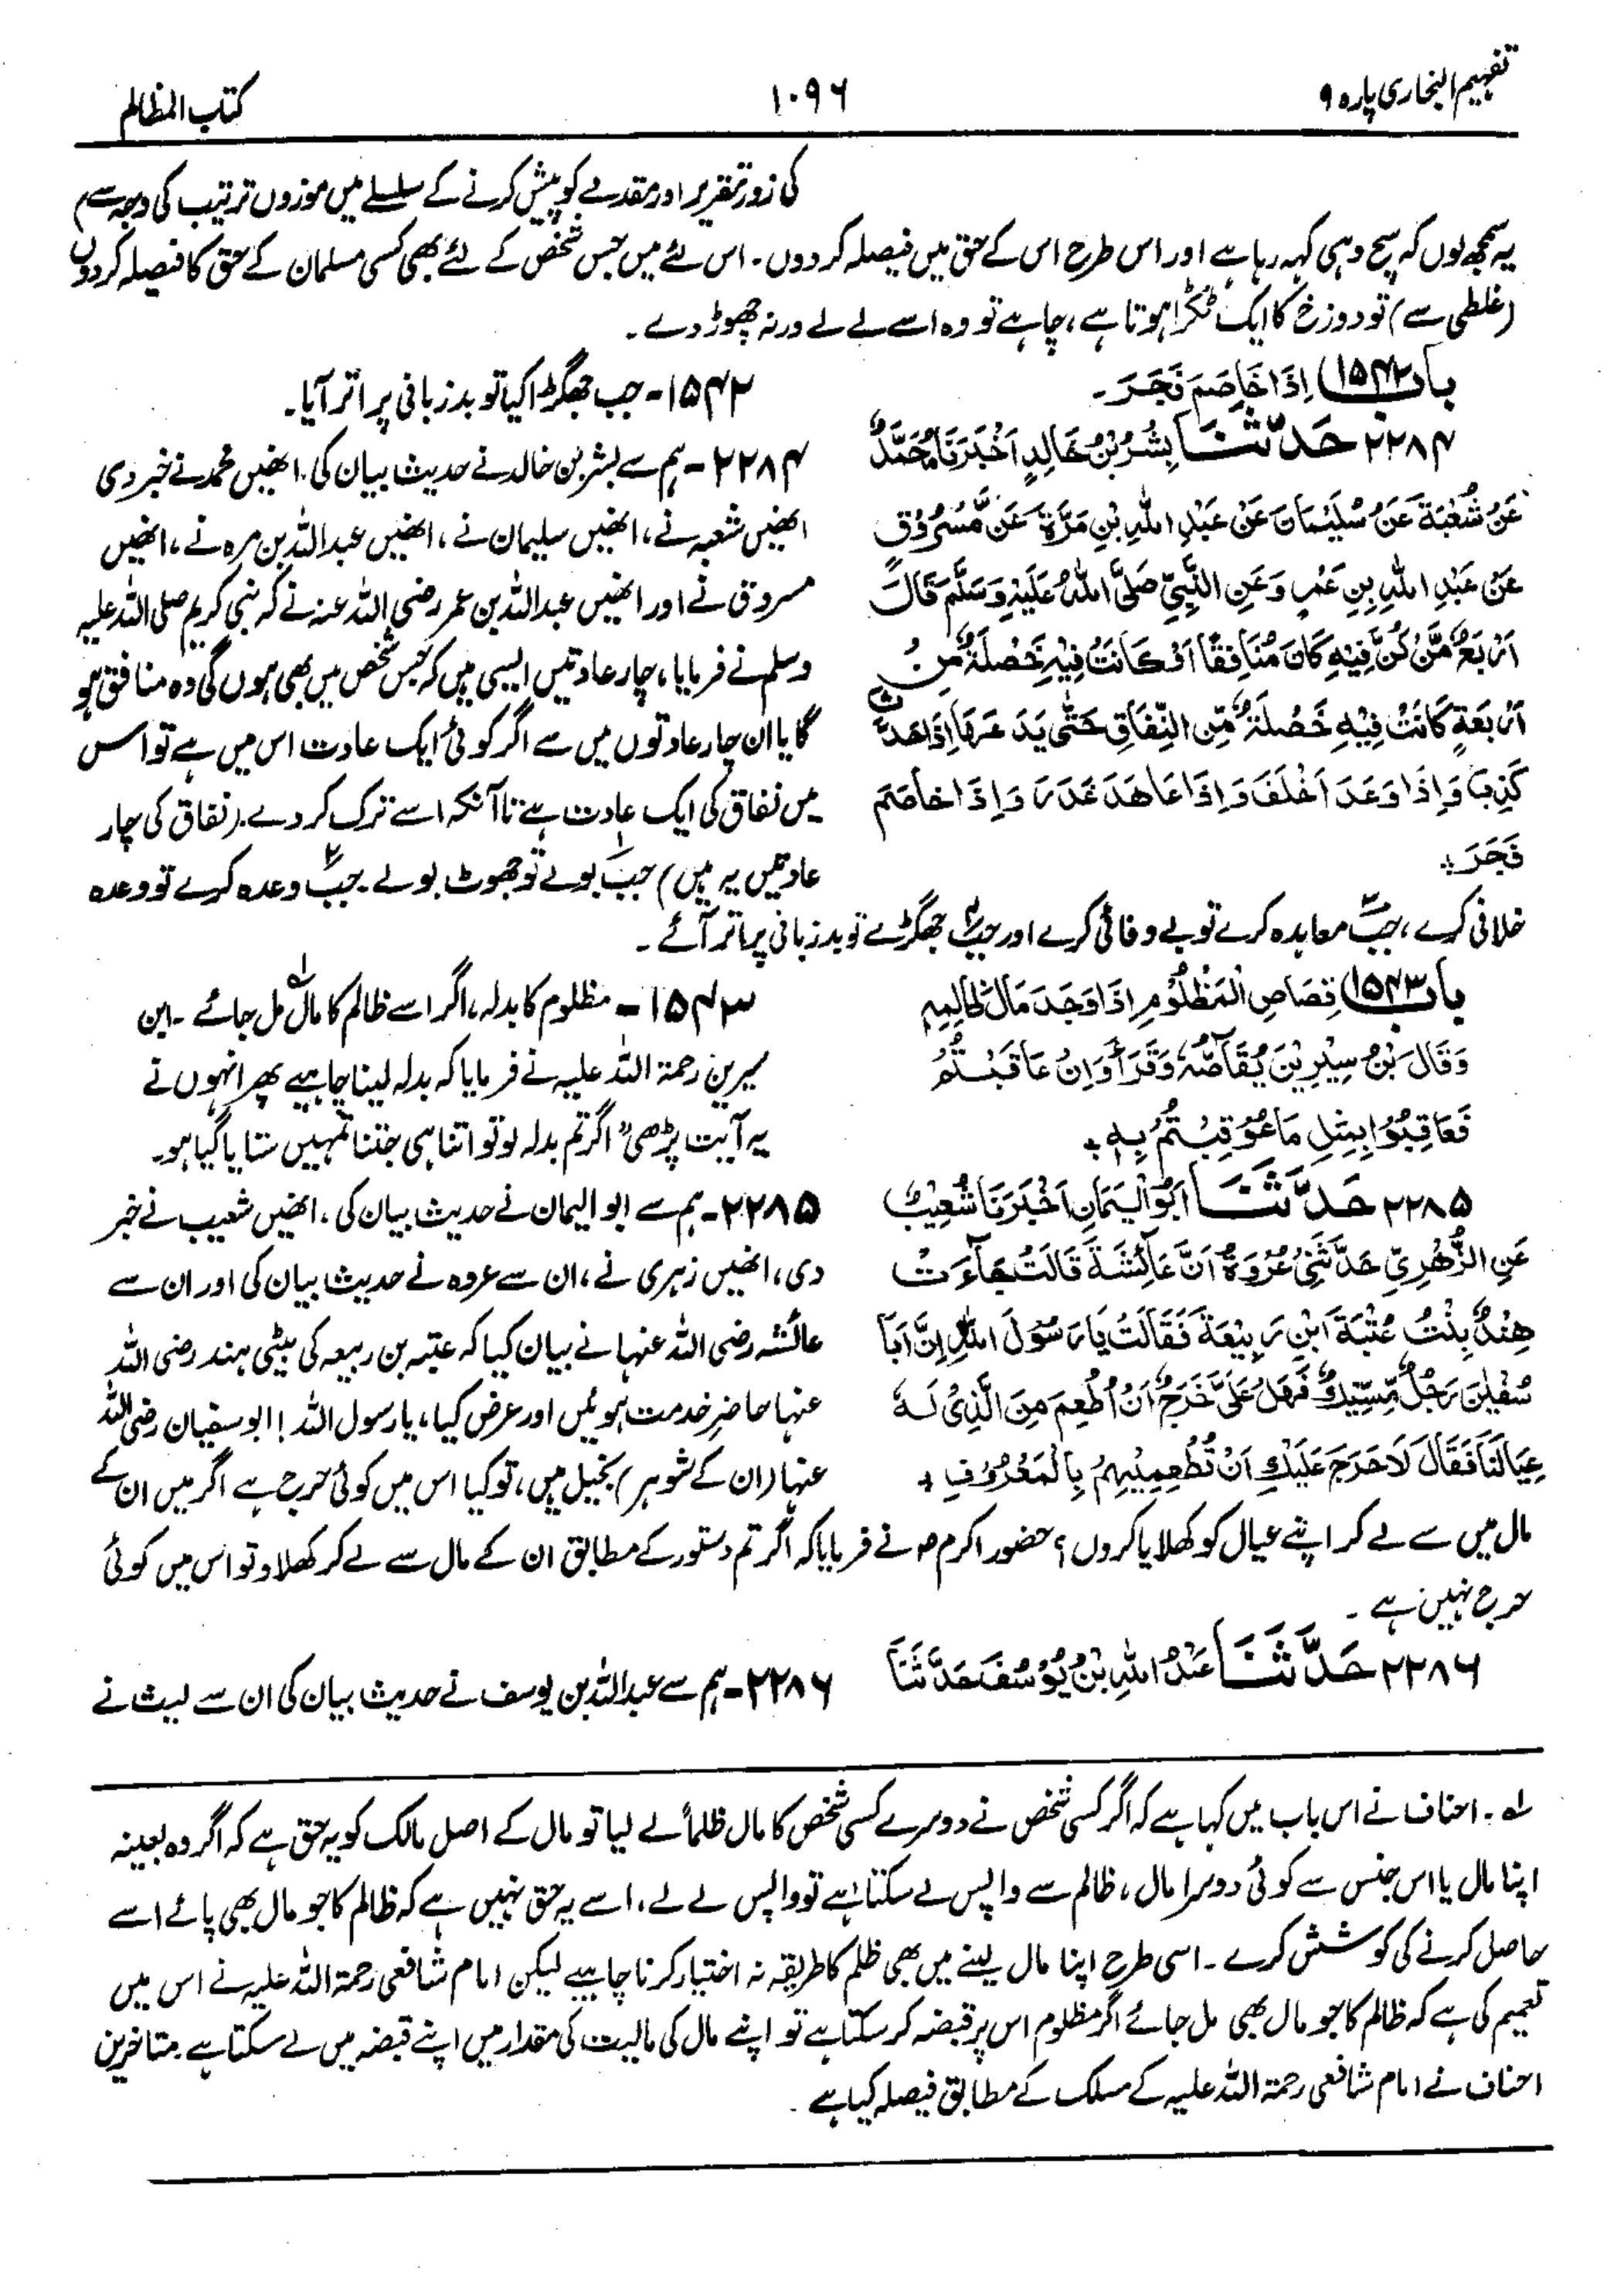 تفہیم البخاری پارہ ۹
۱۰۹۶
کتاب المظالم
کی زور تقریر اور مقدمے کو پیش کرنے کے سلسلے میں موزوں ترتیب کی وجہ سے میں
یہ سمجھ لوں کہ سچ وہی کہہ رہا ہے اور اس طرح اس کے حق میں فیصلہ کردوں۔ اس لئے میں جس شخص کے لئے بھی کسی مسلمان کے حق کا فیصلہ کردوں
(غلطی سے) تو دوزخ کا ایک ٹکڑا ہوتا ہے، چاہے تو وہ اسے لے لے ورنہ چھوڑ دے۔
باب (۱۵۴۲) اِذَا خَاصَمَ فَجَرَ۔
۲۲۸۴ حَدَّثَنَا بِشْرُ بْنُ خَالِدٍ اَخْبَرَنَا مُحَمَّدٌ
عَنْ شُعْبَةَ عَنْ سُلَيْمَانَ عَنْ عَبْدِ اللهِ بْنِ مَرَّةَ عَنْ مَّسْرُوْقٍ
عَنْ عَبْدِ اللهِ بْنِ عَمْرٍ وَعَنِ النَّبِيِّ صَلَّى اللهُ عَلَيْهِ وَسَلَّمَ قَالَ
اَرْبَعٌ مَّنْ كُنَّ فِيْهِ كَانَ مُنَافِقًا اَوْ كَانَتْ فِيْهِ خَصْلَةٌ مِنْ
اَرْبَعَةٍ كَانَتْ فِيْهِ خَصْلَةٌ مِّنَ النِّفَاقِ حَتّٰى يَدَعَهَا اِذَا حَدَّثَ
كَذِبَ وَاِذَا وَعَدَ اَخْلَفَ وَاِذَا عَاهَدَ غَدَرَ وَاِذَا خَاصَمَ
فَجَرَ ۔
۱۵۴۲- جب جھگڑا کیا تو بدزبانی پر اتر آیا۔
۲۲۸۴- ہم سے بشر بن خالد نے حدیث بیان کی، انھیں محمد نے خبر دی
انھیں شعبہ نے، انھیں سلیمان نے، انھیں عبداللہ بن مرہ نے، انھیں
مسروق نے اور انھیں عبداللہ بن عمر رضی اللہ عنہ نے کہ نبی کریم صلی اللہ علیہ
وسلم نے فرمایا، چار عادتیں ایسی ہیں کہ جس شخص میں بھی ہوں گی وہ منافق ہو
گا یا ان چار عادتوں میں سے اگر کوئی ایک عادت اس میں ہے تو اس
میں نفاق کی ایک عادت ہے تاآنکہ اسے ترک کردے۔ (نفاق کی چار
عادتیں یہ ہیں) جب۱ بولے تو جھوٹ بولے۔ جب۲ وعدہ کرے تو وعدہ
خلافی کرے، جب۳ معاہدہ کرے تو بے وفائی کرے اور جب۴ جھگڑے تو بدزبانی پر اتر آئے۔
باب (۱۵۴۳) قِصَاصِ الْمَظْلُوْمِ اِذَا وَجَدَ مَالَ ظَالِمِهٖ
وَقَالَ بْنُ سِيْرِيْنَ يُقَاصُّهٗ وَقَرَأَ وَاِنْ عَاقَبْتُمْ
فَعَاقِبُوْا بِمِثْلِ مَا عُوْقِبْتُمْ بِهٖ ۔
۱۵۴۳- مظلوم کا بدلہ، اگر اسے ظالم کا مال۱؎ مل جائے۔ ابن
سیرین رحمۃ اللہ علیہ نے فرمایا کہ بدلہ لینا چاہیے پھر انہوں نے
یہ آیت پڑھی "اگر تم بدلہ لو تو اتنا ہی جتنا تمہیں ستایا گیا ہو۔
۲۲۸۵ حَدَّثَنَا اَبُو الْيَمَانِ اَخْبَرَنَا شُعَيْبٌ
عَنِ الزُّهْرِيِّ حَدَّثَنِيْ عُرْوَةُ اَنَّ عَائِشَةَ قَالَتْ جَآءَتْ
هِنْدٌ بِنْتُ عُتْبَةَ ابْنِ رَبِيْعَةَ فَقَالَتْ يَا رَسُوْلَ اللهِ اِنَّ اَبَا
سُفْيٰنَ رَجُلٌ مِّسِّيْكٌ فَهَلْ عَلَيَّ حَرَجٌ اَنْ اُطْعِمَ مِنَ الَّذِيْ لَهٗ
عِيَالَنَا فَقَالَ لَا حَرَجَ عَلَيْكِ اَنْ تُطْعِمِيْهِمْ بِالْمَعْرُوْفِ ۔
۲۲۸۵- ہم سے ابوالیمان نے حدیث بیان کی، انھیں شعیب نے خبر
دی، انھیں زہری نے، ان سے عروہ نے حدیث بیان کی اور ان سے
عائشہ رضی اللہ عنہا نے بیان کیا کہ عتبہ بن ربیعہ کی بیٹی ہند رضی اللہ
عنہا حاضر خدمت ہوئیں اور عرض کیا، یا رسول اللہ! ابوسفیان رضی اللہ
عنہا (ان کے شوہر) بخیل ہیں، تو کیا اس میں کوئی حرج ہے اگر میں ان کے
مال میں سے لے کر اپنے عیال کو کھلایا کروں؟ حضور اکرم ؐ نے فرمایا کہ اگر تم دستور کے مطابق ان کے مال سے لے کر کھلاؤ تو اس میں کوئی
حرج نہیں ہے۔
۲۲۸۶ حَدَّثَنَا عَبْدُ اللهِ بْنُ يُوْسُفَ حَدَّثَنَا
۲۲۸۶- ہم سے عبداللہ بن یوسف نے حدیث بیان کی ان سے لیث نے
۱؎۔ احناف نے اس باب میں کہا ہے کہ اگر کسی شخص نے دوسرے کسی شخص کا مال ظلماً لے لیا تو مال کے اصل مالک کو یہ حق ہے کہ اگر وہ بعینہ
اپنا مال یا اس جنس سے کوئی دوسرا مال، ظالم سے واپس لے سکتا ہے تو واپس لے لے، اسے یہ حق نہیں ہے کہ ظالم کا جو مال بھی پائے اسے
حاصل کرنے کی کوشش کرے۔ اسی طرح اپنا مال لینے میں بھی ظلم کا طریقہ نہ اختیار کرنا چاہیے لیکن امام شافعی رحمۃ اللہ علیہ نے اس میں
تعمیم کی ہے کہ ظالم کا جو مال بھی مل جائے اگر مظلوم اس پر قبضہ کرسکتا ہے تو اپنے مال کی مالیت کی مقدار میں اپنے قبضہ میں لے سکتا ہے۔ متاخرین
احناف نے امام شافعی رحمۃ اللہ علیہ کے مسلک کے مطابق فیصلہ کیا ہے۔